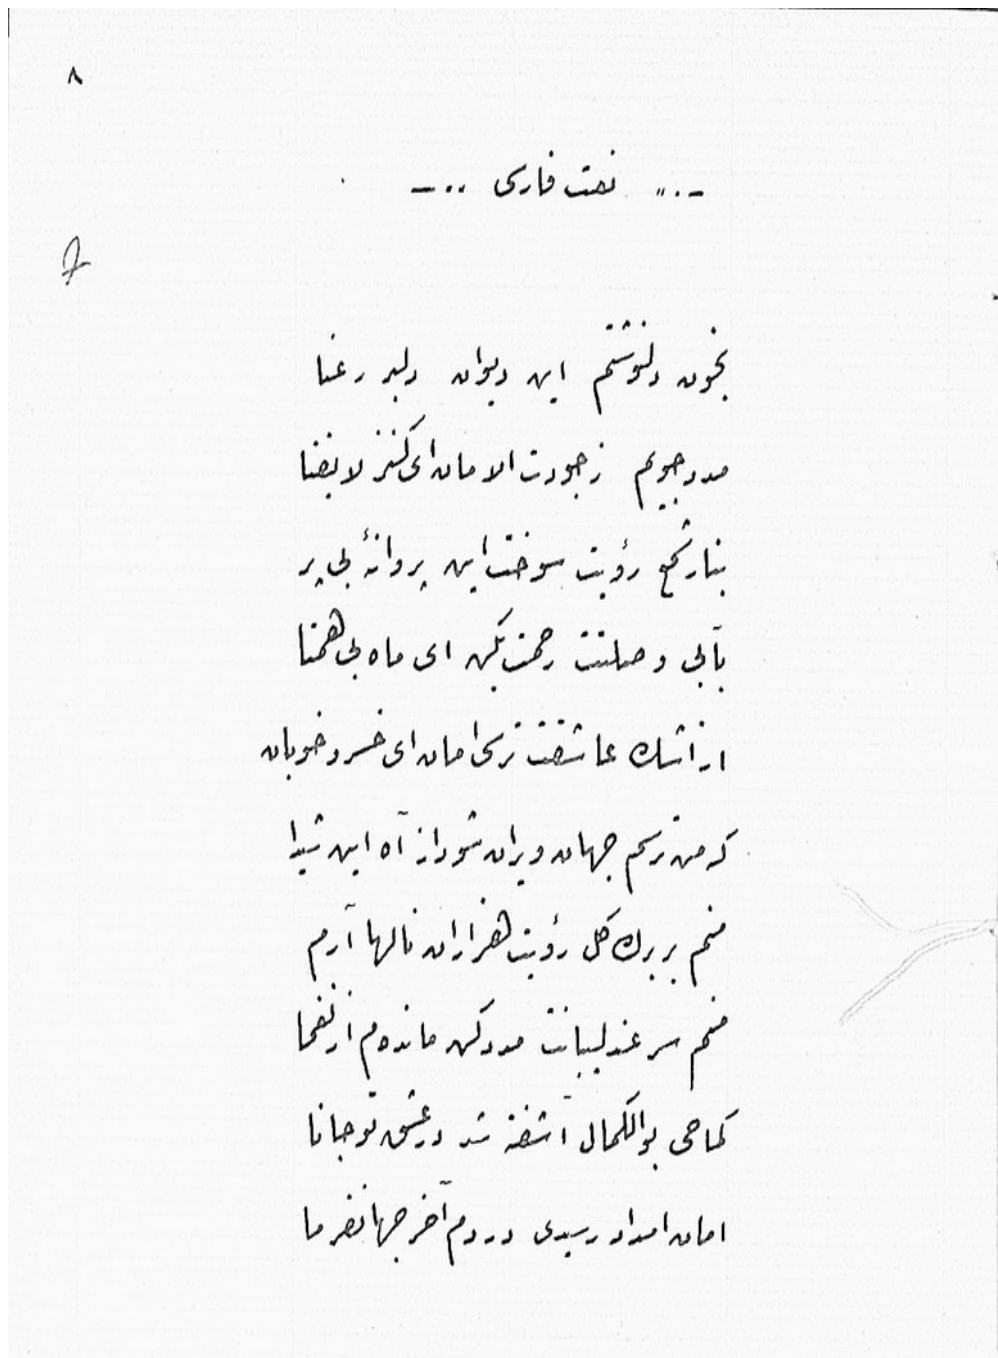 ٨
نعت فارسی
بخون دلنوشتم این دیوان دلبر رعنا
مدد جویم ز جودت الامان ای کنز لا یفنا
بنار شمع رؤیت سوخت این پروانهٔ بی پر
بآبی وصلتت رحمت بکن ای ماه بی همتا
از اشک عاشقت ترکی امان ای خسرو خوبان
که من ترسم جهان ویران شود از آه این شیدا
منم بر برك گل رؤیت هزاران نالها آرم
منم سر عندلیبانت مدد کن مانده‌م از نغما
کماحی بوالکمال آشفته شد در عشق تو جانا
امان امداد رسیدی در دم آخر جهانفرما